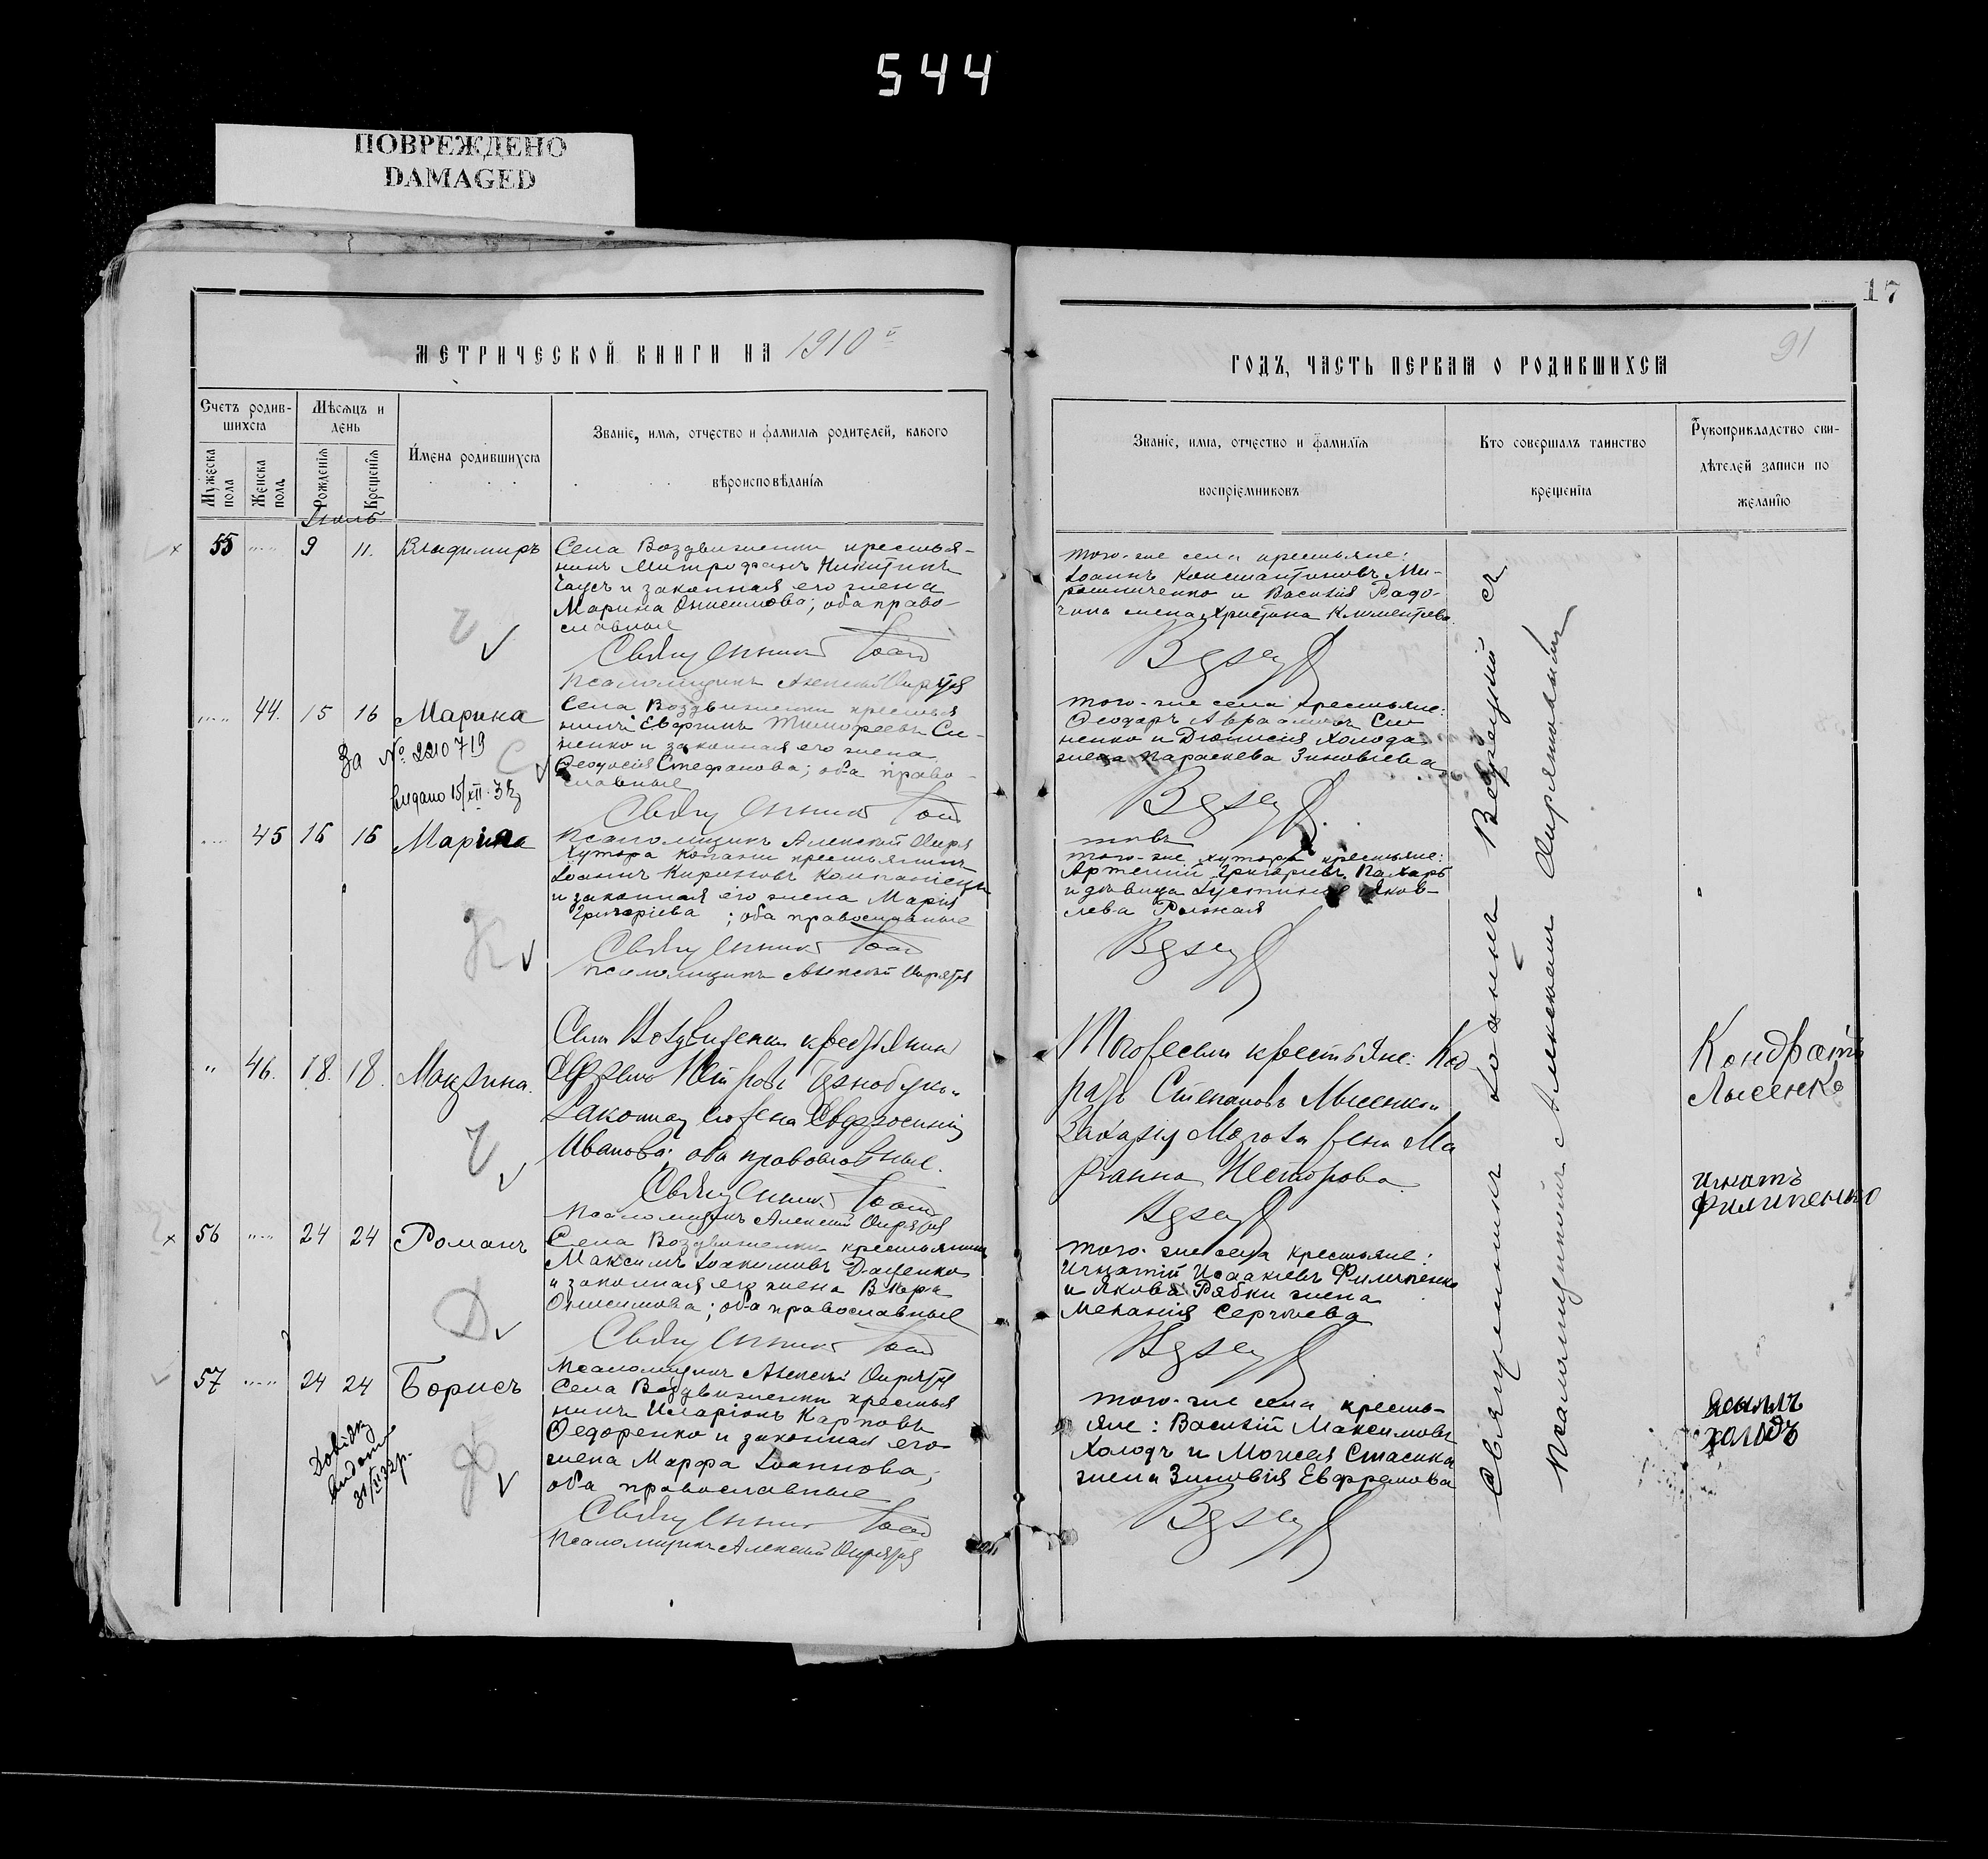 544
ПОВРЕЖДЕНО
DAMAGED
17
91
МЕТРИЧЕСКОЙ КНИГИ НА 1910й
ГОДЪ, ЧАСТЬ ПЕРВАЯ О РОДИВШИХСЯ
Счетъ родив-
шихся
Мужеска пола
Женска пола
Мѣсяцъ и
день
Рожденія
Крещенія
Имена родившихся
Званіе, имя, отчество и фамилія родителей, какого
вѣроисповѣданія
Званіе, имя, отчество и фамилія
воспріемниковъ
Кто совершалъ таинство
крещенія
Рукоприкладство сви-
дѣтелей записи по
желанію
Іюль
55 9 11. Владимиръ
Села Воздвиженки крестья-
нинъ Митрофанъ Никитинъ
Чаусъ и законная его жена
Марина Онисимова; оба право-
славные
Священникъ
Псаломщикъ Алексій
того-же села крестьяне:
Іоаннъ Константиновъ Ми-
рошниченко и Василія Радо-
жена Христина Климентьева
44. 15 16 Марина
За № 2210719
видано 15/XII
Села Воздвиженки крестья
нинъ Тимофеевъ Си-
ненко и законная его жена
Феодосія Стефанова; оба право-
славные
Священникъ
Псаломщикъ Алексій
того-же села крестьяне:
Феодоръ Авраамовъ Си-
ненко и Діонисія Холода
жена Параскева Зиновіева
45 15 16 Марина
Хутора Копани крестьянинъ
Іоаннъ Кириловъ Компаніецъ
и законная его жена Марія
Григоріева; оба православные
Священникъ
Псаломщикъ Алексій
того-же хутора крестьяне:
Артемій Григорьевъ Пахарь
и дѣвица Іустинія Яков-
лева
46. 18. 18.
Села Воздвиженки крестьянинъ
Законная его жена Евфросинія
Иванова: оба православные.
Священникъ
Псаломщикъ Алексій
Того же села крестьяне: Код-
ратъ Степановъ Лысенко и
Захарія Мороза жена Ма
Несторова
Кондратъ
Лысенко
56 24 24 Романъ
Села Воздвиженки крестьянинъ
Максимъ Іоакимовъ Даценко
и законная его жена Вѣра
Онисимова; оба православные
Священникъ
Псаломщикъ Алексій
того-же села крестьяне:
Игнатій Исаакіевъ Филипенко
и Якова Рябки жена
Меланія Сергіева
Игнатъ
Филипенко
57 24 24 Борисъ
Довідку
видано
Села Воздвиженки крестья
нинъ Иларіонъ Карповъ
Федоренко и законная его
жена Марфа Іоаннова;
оба православные
Священникъ
Псаломщикъ Алексій
того-же села кресть-
яне: Василій Максимовъ
Холодъ и Моисея Стасика
жена Зиновія Евфремова
холодъ
Священникъ Іоаннъ
Псаломщикомъ Алексіемъ